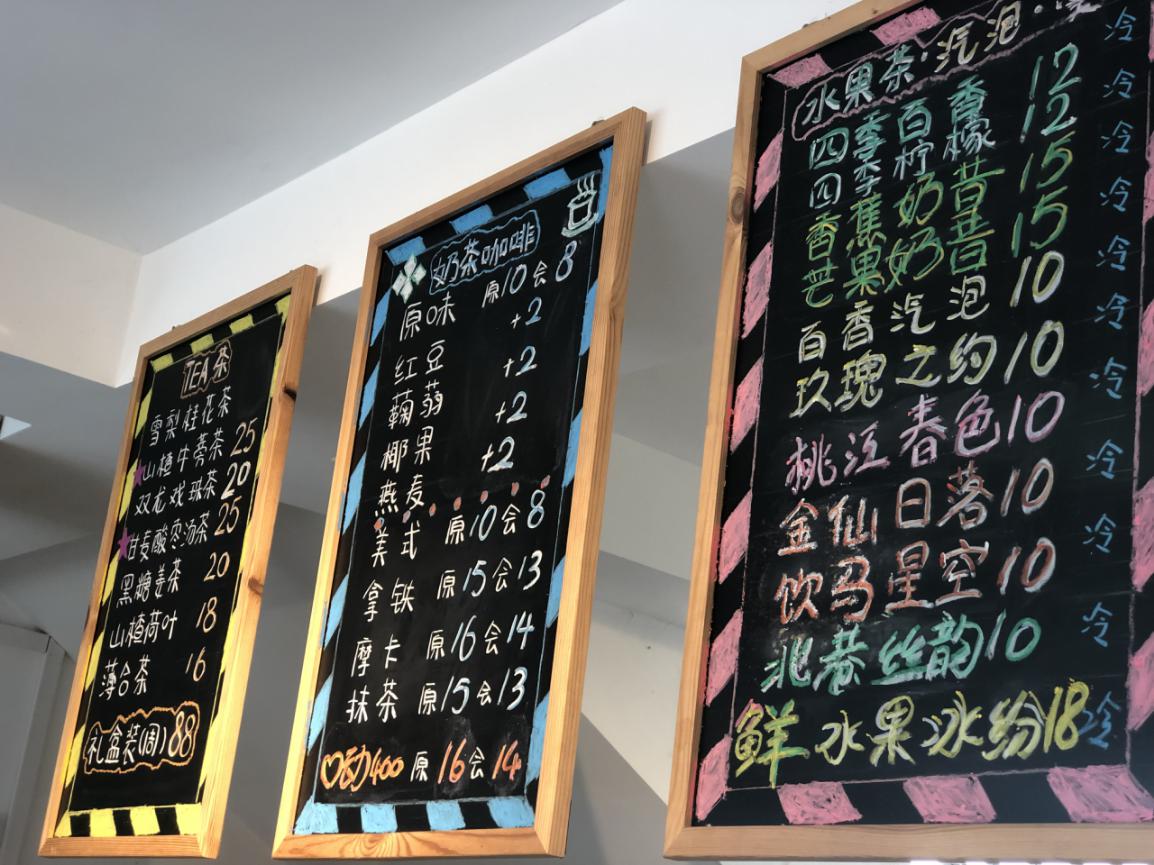 TEA茶
雪梨桂花茶 25
★山楂牛蒡茶 20
双龙戏珠茶 25
★甘麦酸枣汤茶
黑糖姜茶 20
山楂荷叶 18
薄合茶 16
礼盒装(周)88
奶茶咖啡
原味 原10会8
红豆 +2
蒟蒻 +2
椰果 +2
燕麦 +2
美式 原10会8
拿铁 原15会13
摩卡 原16会14
抹茶 原15会13
♡动400 原16会14
水果茶·汽泡·
四季百香 12 冷
四季柠檬 12 冷
香蕉奶昔 15 冷
芒果奶昔 15 冷
百香汽泡 10 冷
玫瑰之约 10 冷
桃江春色 10 冷
金仙日落 10 冷
饮马星空 10 冷
北巷丝韵 10 冷
鲜水果冰纷18冷